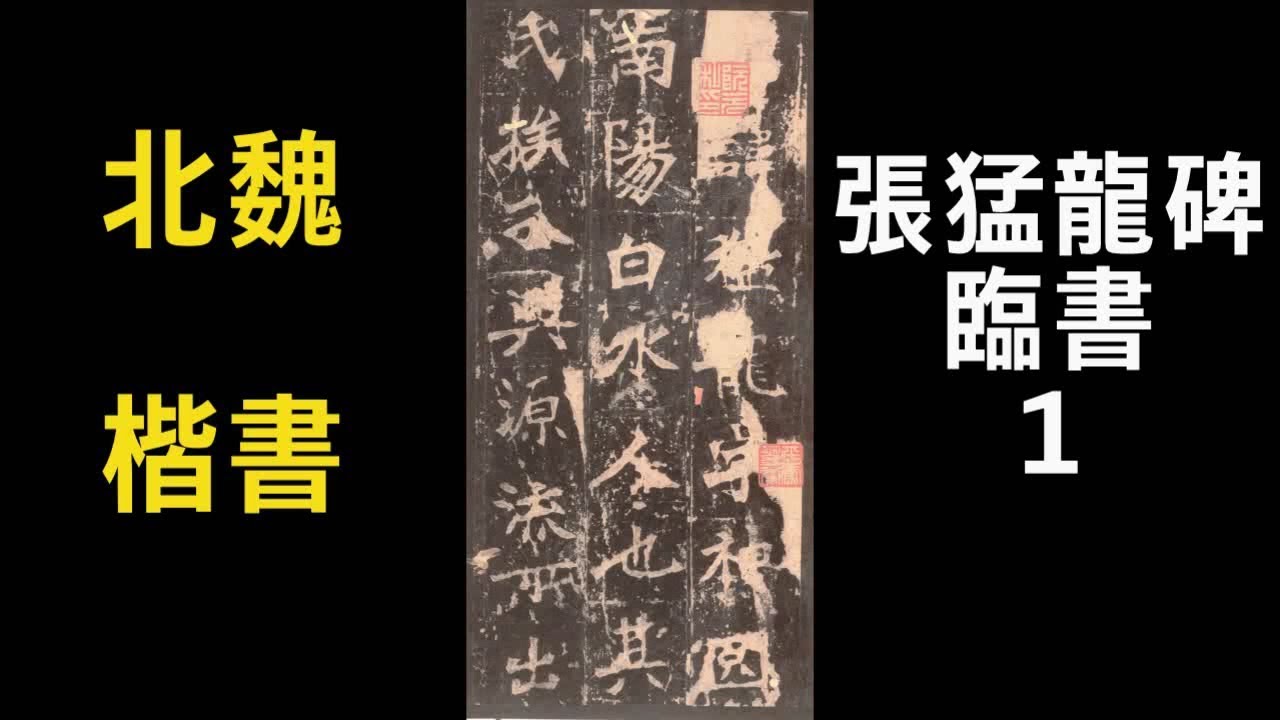 北魏
楷書
諱猛龍字神囧
南陽白水人也其
氏族分興源流所出
張猛龍碑
臨書
1